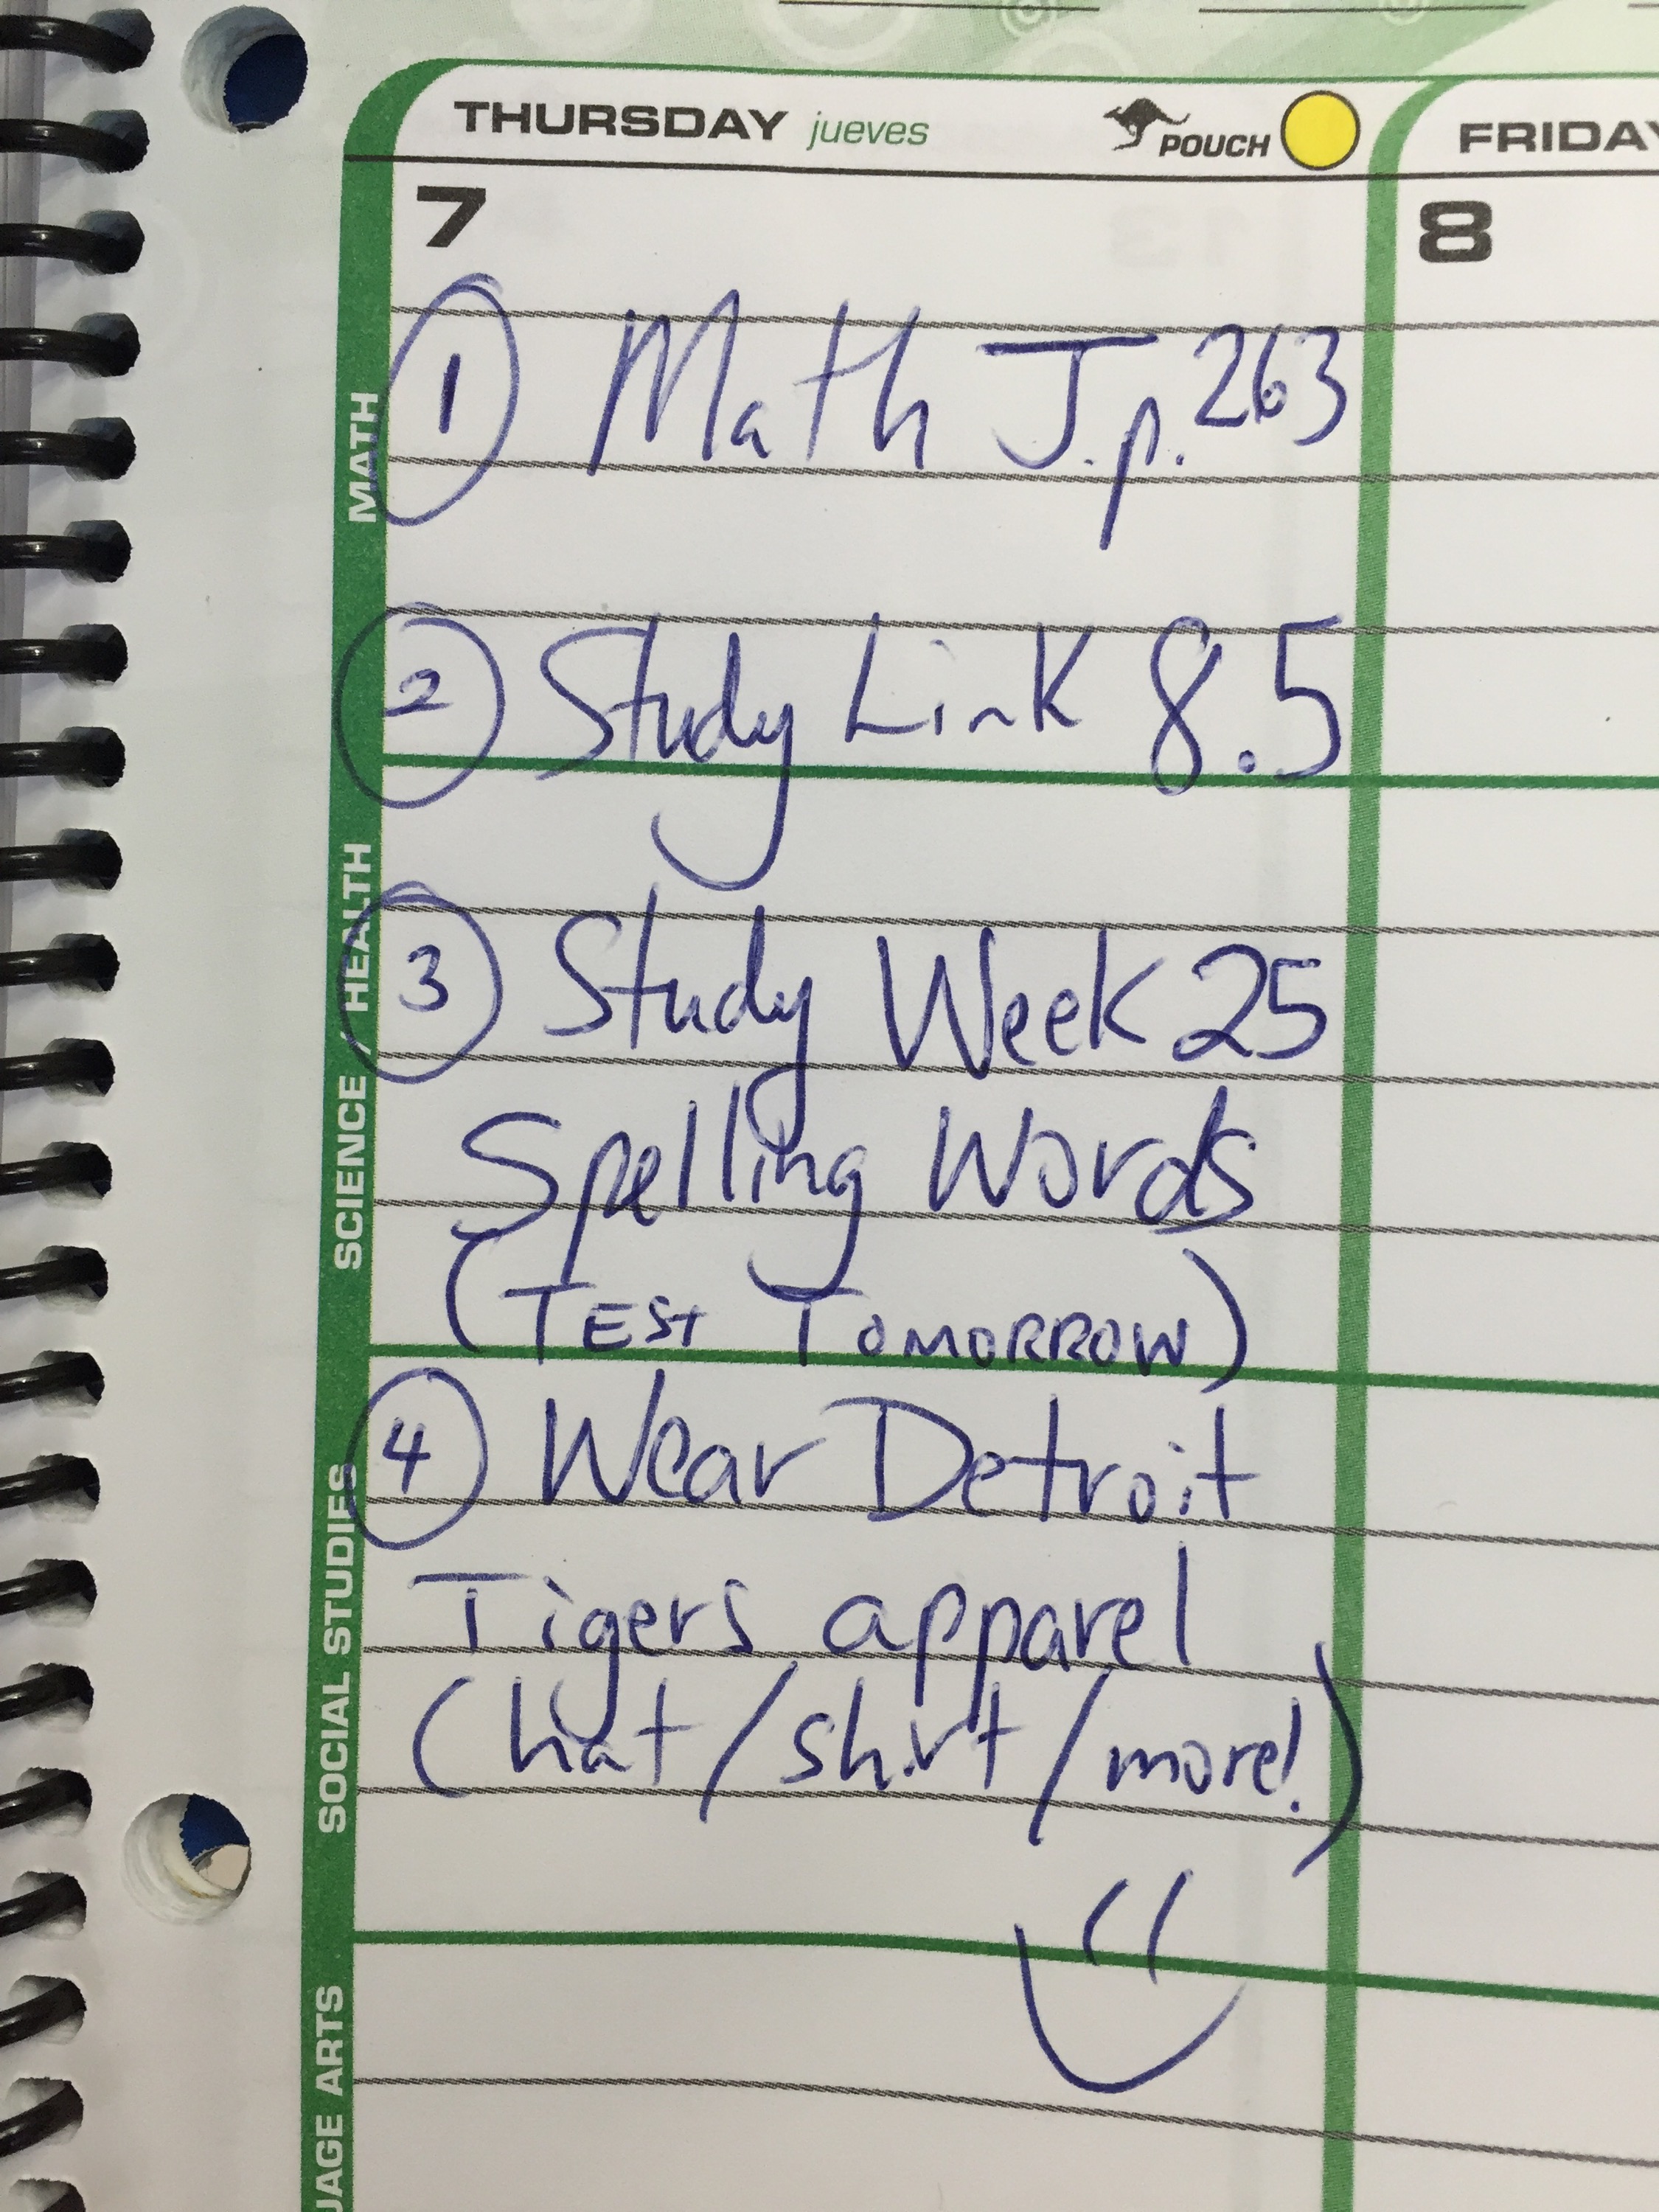 THURSDAY jueves POUCH
FRIDAY
7
8
MATH
① Math J.p. 263
② Study Link 8.5
SCIENCE / HEALTH
③ Study Week 25
Spelling Words
(TEST TOMORROW)
SOCIAL STUDIES
④ Wear Detroit
Tigers apparel
(hat/shirt/more!)
UAGE ARTS